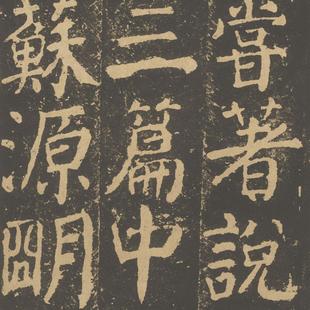 嘗著說
三篇中
蘇源朙